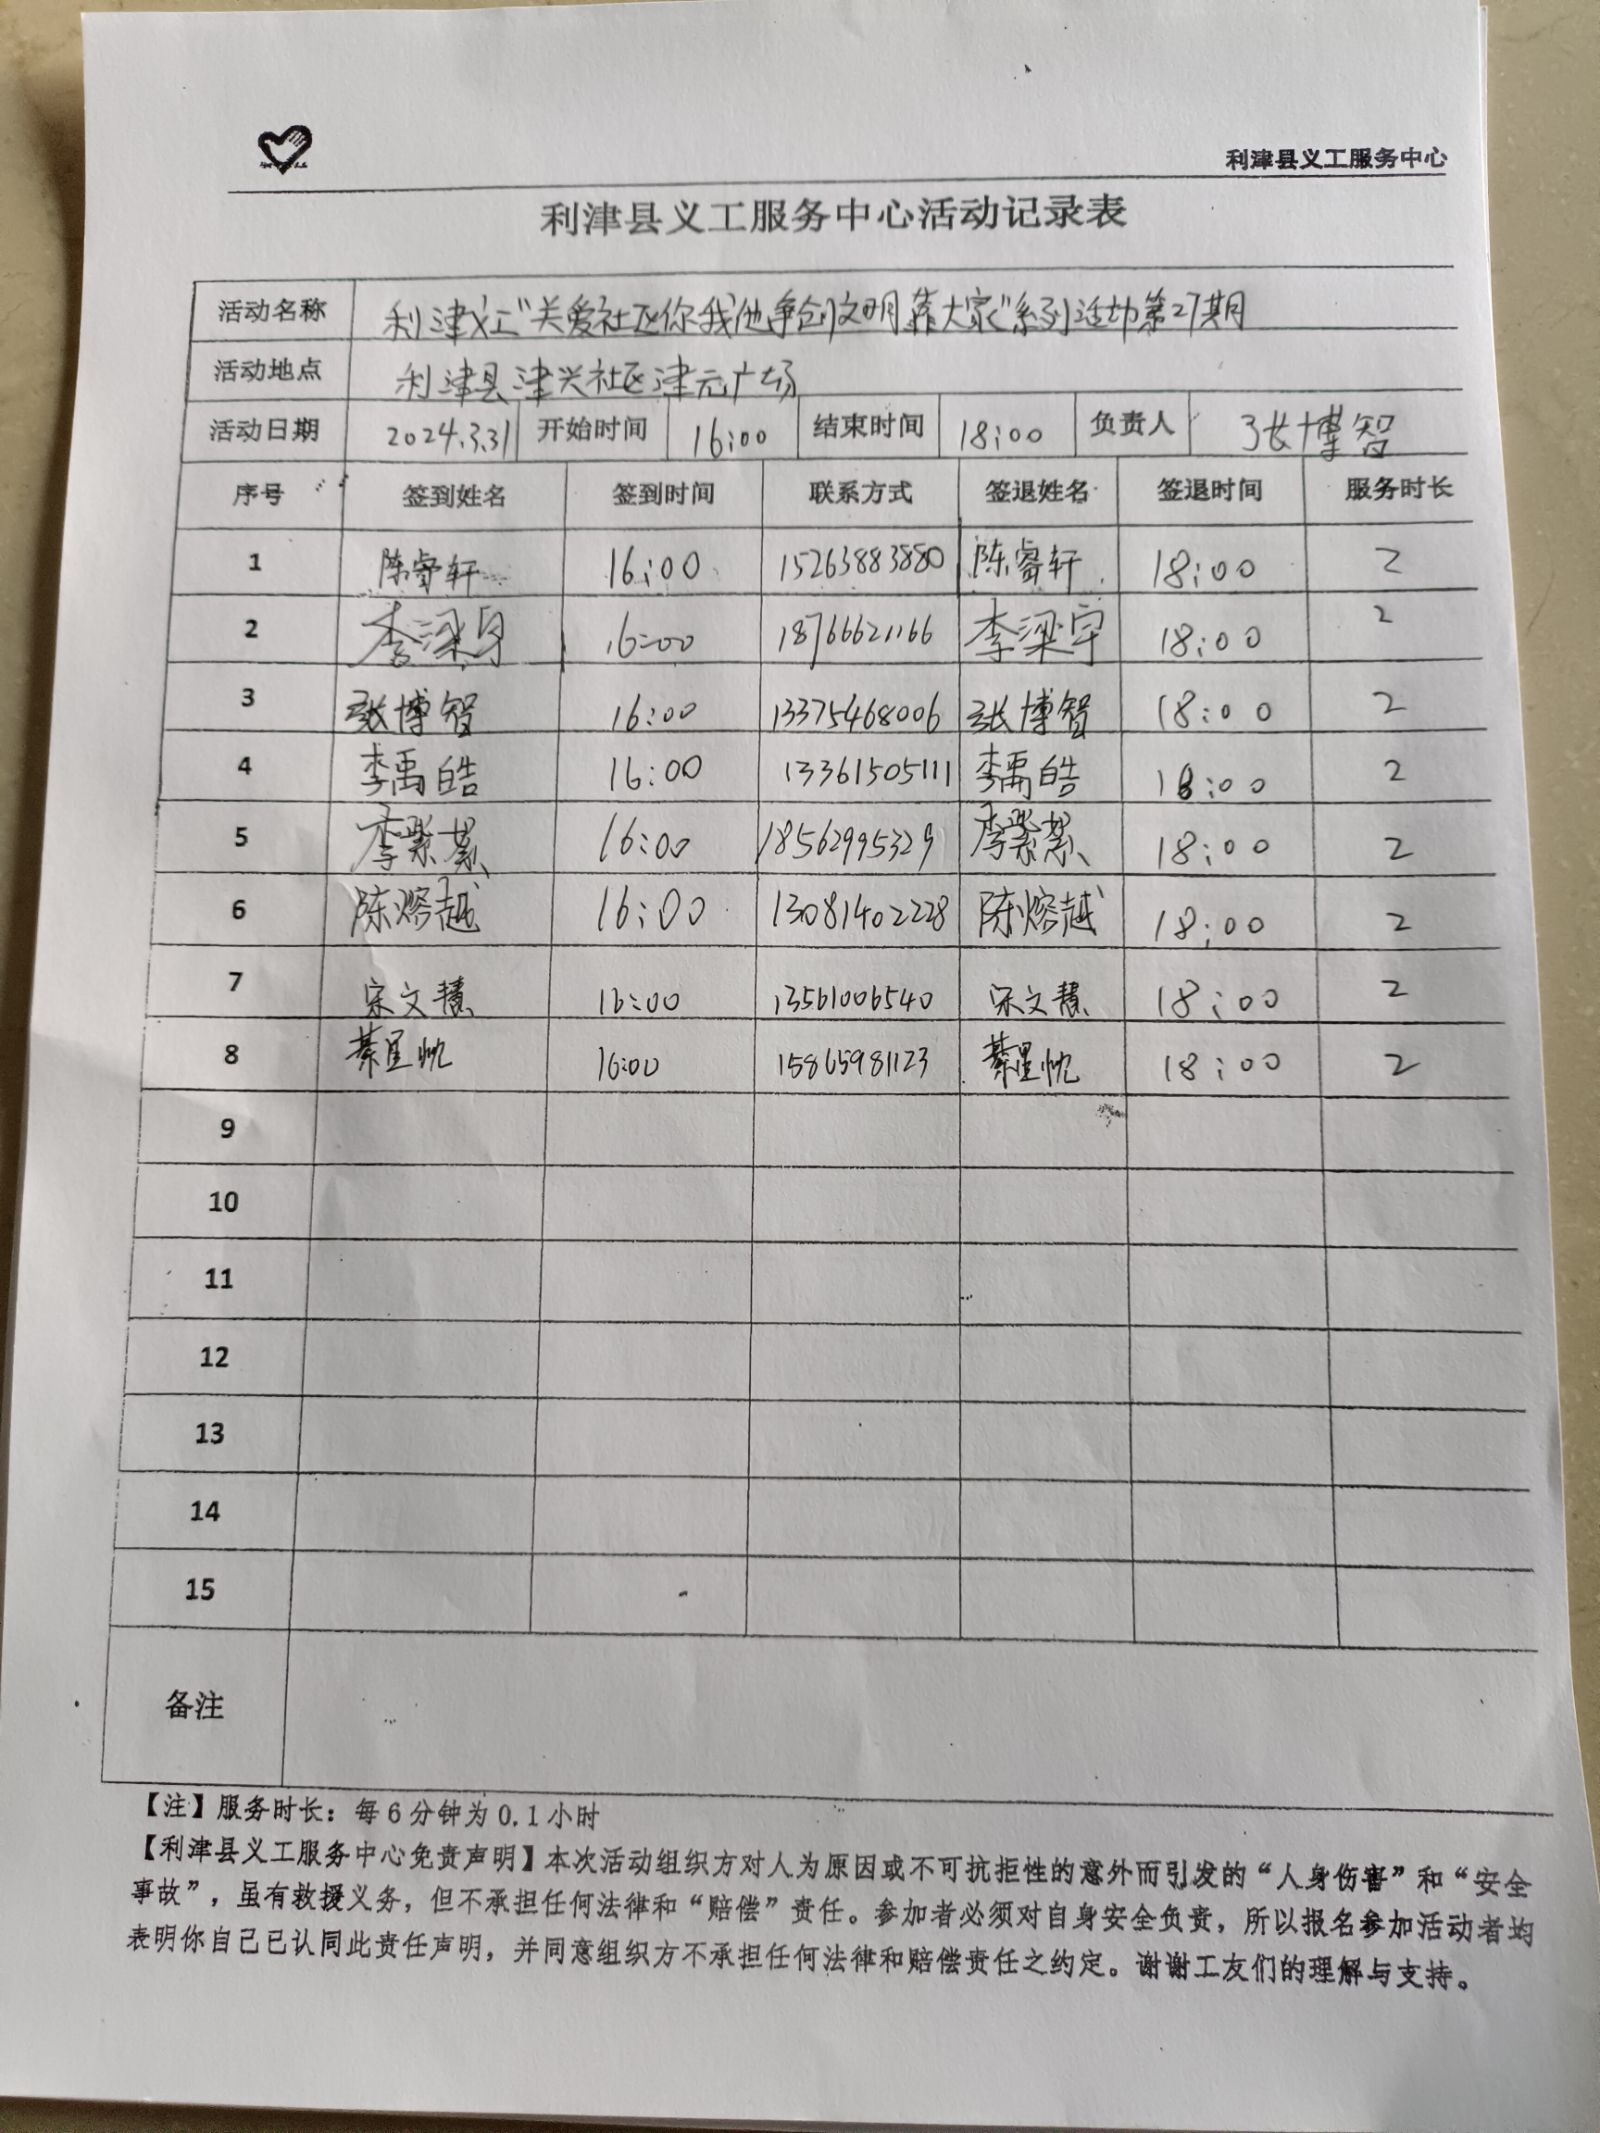 利津县义工服务中心
利津县义工服务中心活动记录表
活动名称 利津义工"关爱社区你我他争创文明靠大家"系列活动第27期
活动地点 利津县津兴社区津元广场
活动日期 2024.3.31 开始时间 16:00 结束时间 18:00 负责人 张博智
序号 签到姓名 签到时间 联系方式 签退姓名 签退时间 服务时长
1 陈睿轩 16:00 15263883880 陈睿轩 18:00 2
2 李梁宇 16:00 18766621166 李梁宇 18:00 2
3 张博智 16:00 13375468006 张博智 18:00 2
4 李禹皓 16:00 13361505111 李禹皓 18:00 2
5 李紫萦 16:00 18562995329 李紫萦 18:00 2
6 陈熔越 16:00 13081402228 陈熔越 18:00 2
7 宋文慧 16:00 13561006540 宋文慧 18:00 2
8 綦星忱 16:00 15865981123 綦星忱 18:00 2
9
10
11
12
13
14
15
备注
【注】服务时长：每6分钟为0.1小时
【利津县义工服务中心免责声明】本次活动组织方对人为原因或不可抗拒性的意外而引发的“人身伤害”和“安全
事故”，虽有救援义务，但不承担任何法律和“赔偿”责任。参加者必须对自身安全负责，所以报名参加活动者均
表明你自己已认同此责任声明，并同意组织方不承担任何法律和赔偿责任之约定。谢谢工友们的理解与支持。